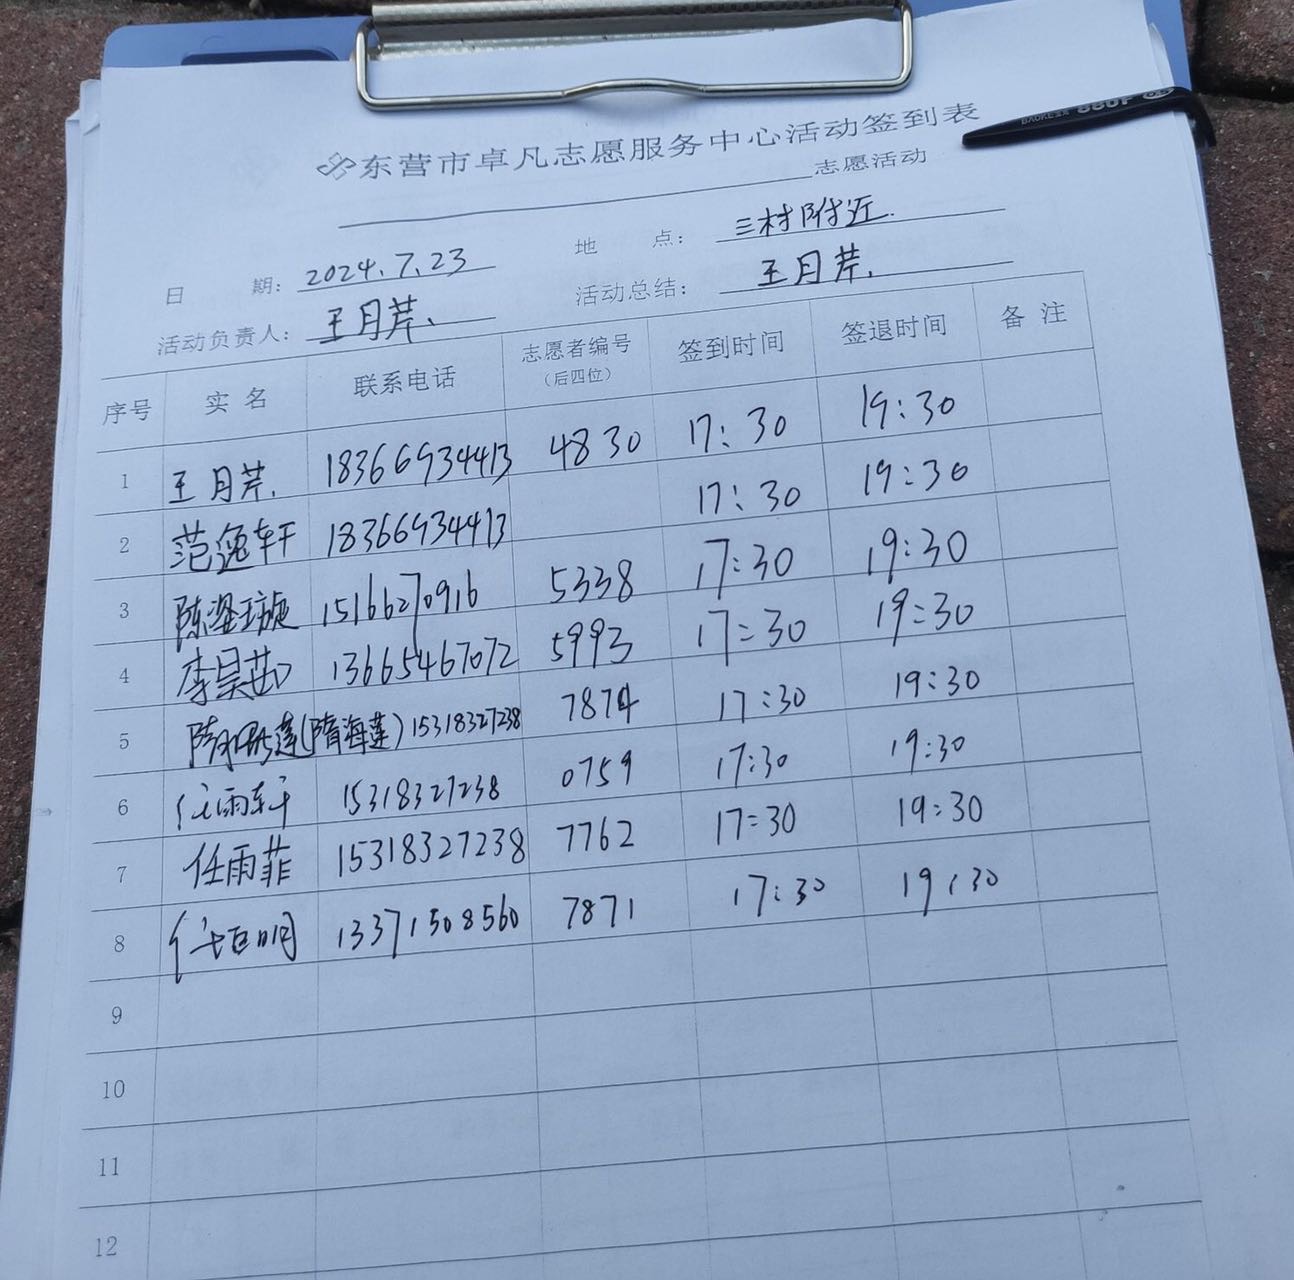 东营市卓凡志愿服务中心活动签到表
志愿活动
日 期: 2024.7.23 地 点: 三村附近.
活动负责人: 王月芹、 活动总结: 王月芹.
序号 实名 联系电话 志愿者编号(后四位) 签到时间 签退时间 备注
1 王月芹. 18366934413 4830 17:30 19:30
2 范逸轩 18366934413 17:30 19:30
3 陈 璇 15166270916 5338 17:30 19:30
4 李昊茹 13665467072 5993 17:30 19:30
5 (隋海莲) 15318327238 7874 17:30 19:30
6 任雨轩 15318327238 0759 17:30 19:30
7 任雨菲 15318327238 7762 17:30 19:30
8 任 明 13371508560 7871 17:30 19:30
9
10
11
12
BAOKE 880F